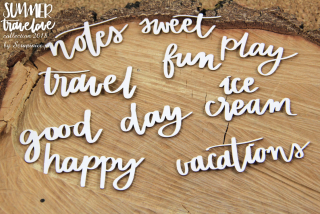 SUMMER
travelove
collection 2018
by Scrapiniec
notes sweet
fun play
travel
ice
cream
good day
happy
vacations